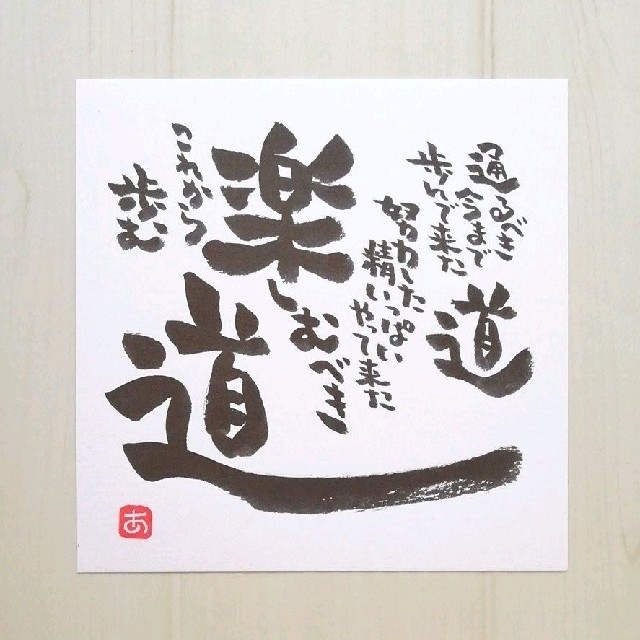 通るべき
今まで
歩いで来た
道
努力した
精いっぱい
やって来た
楽しむべき
これから
歩む
道
あ